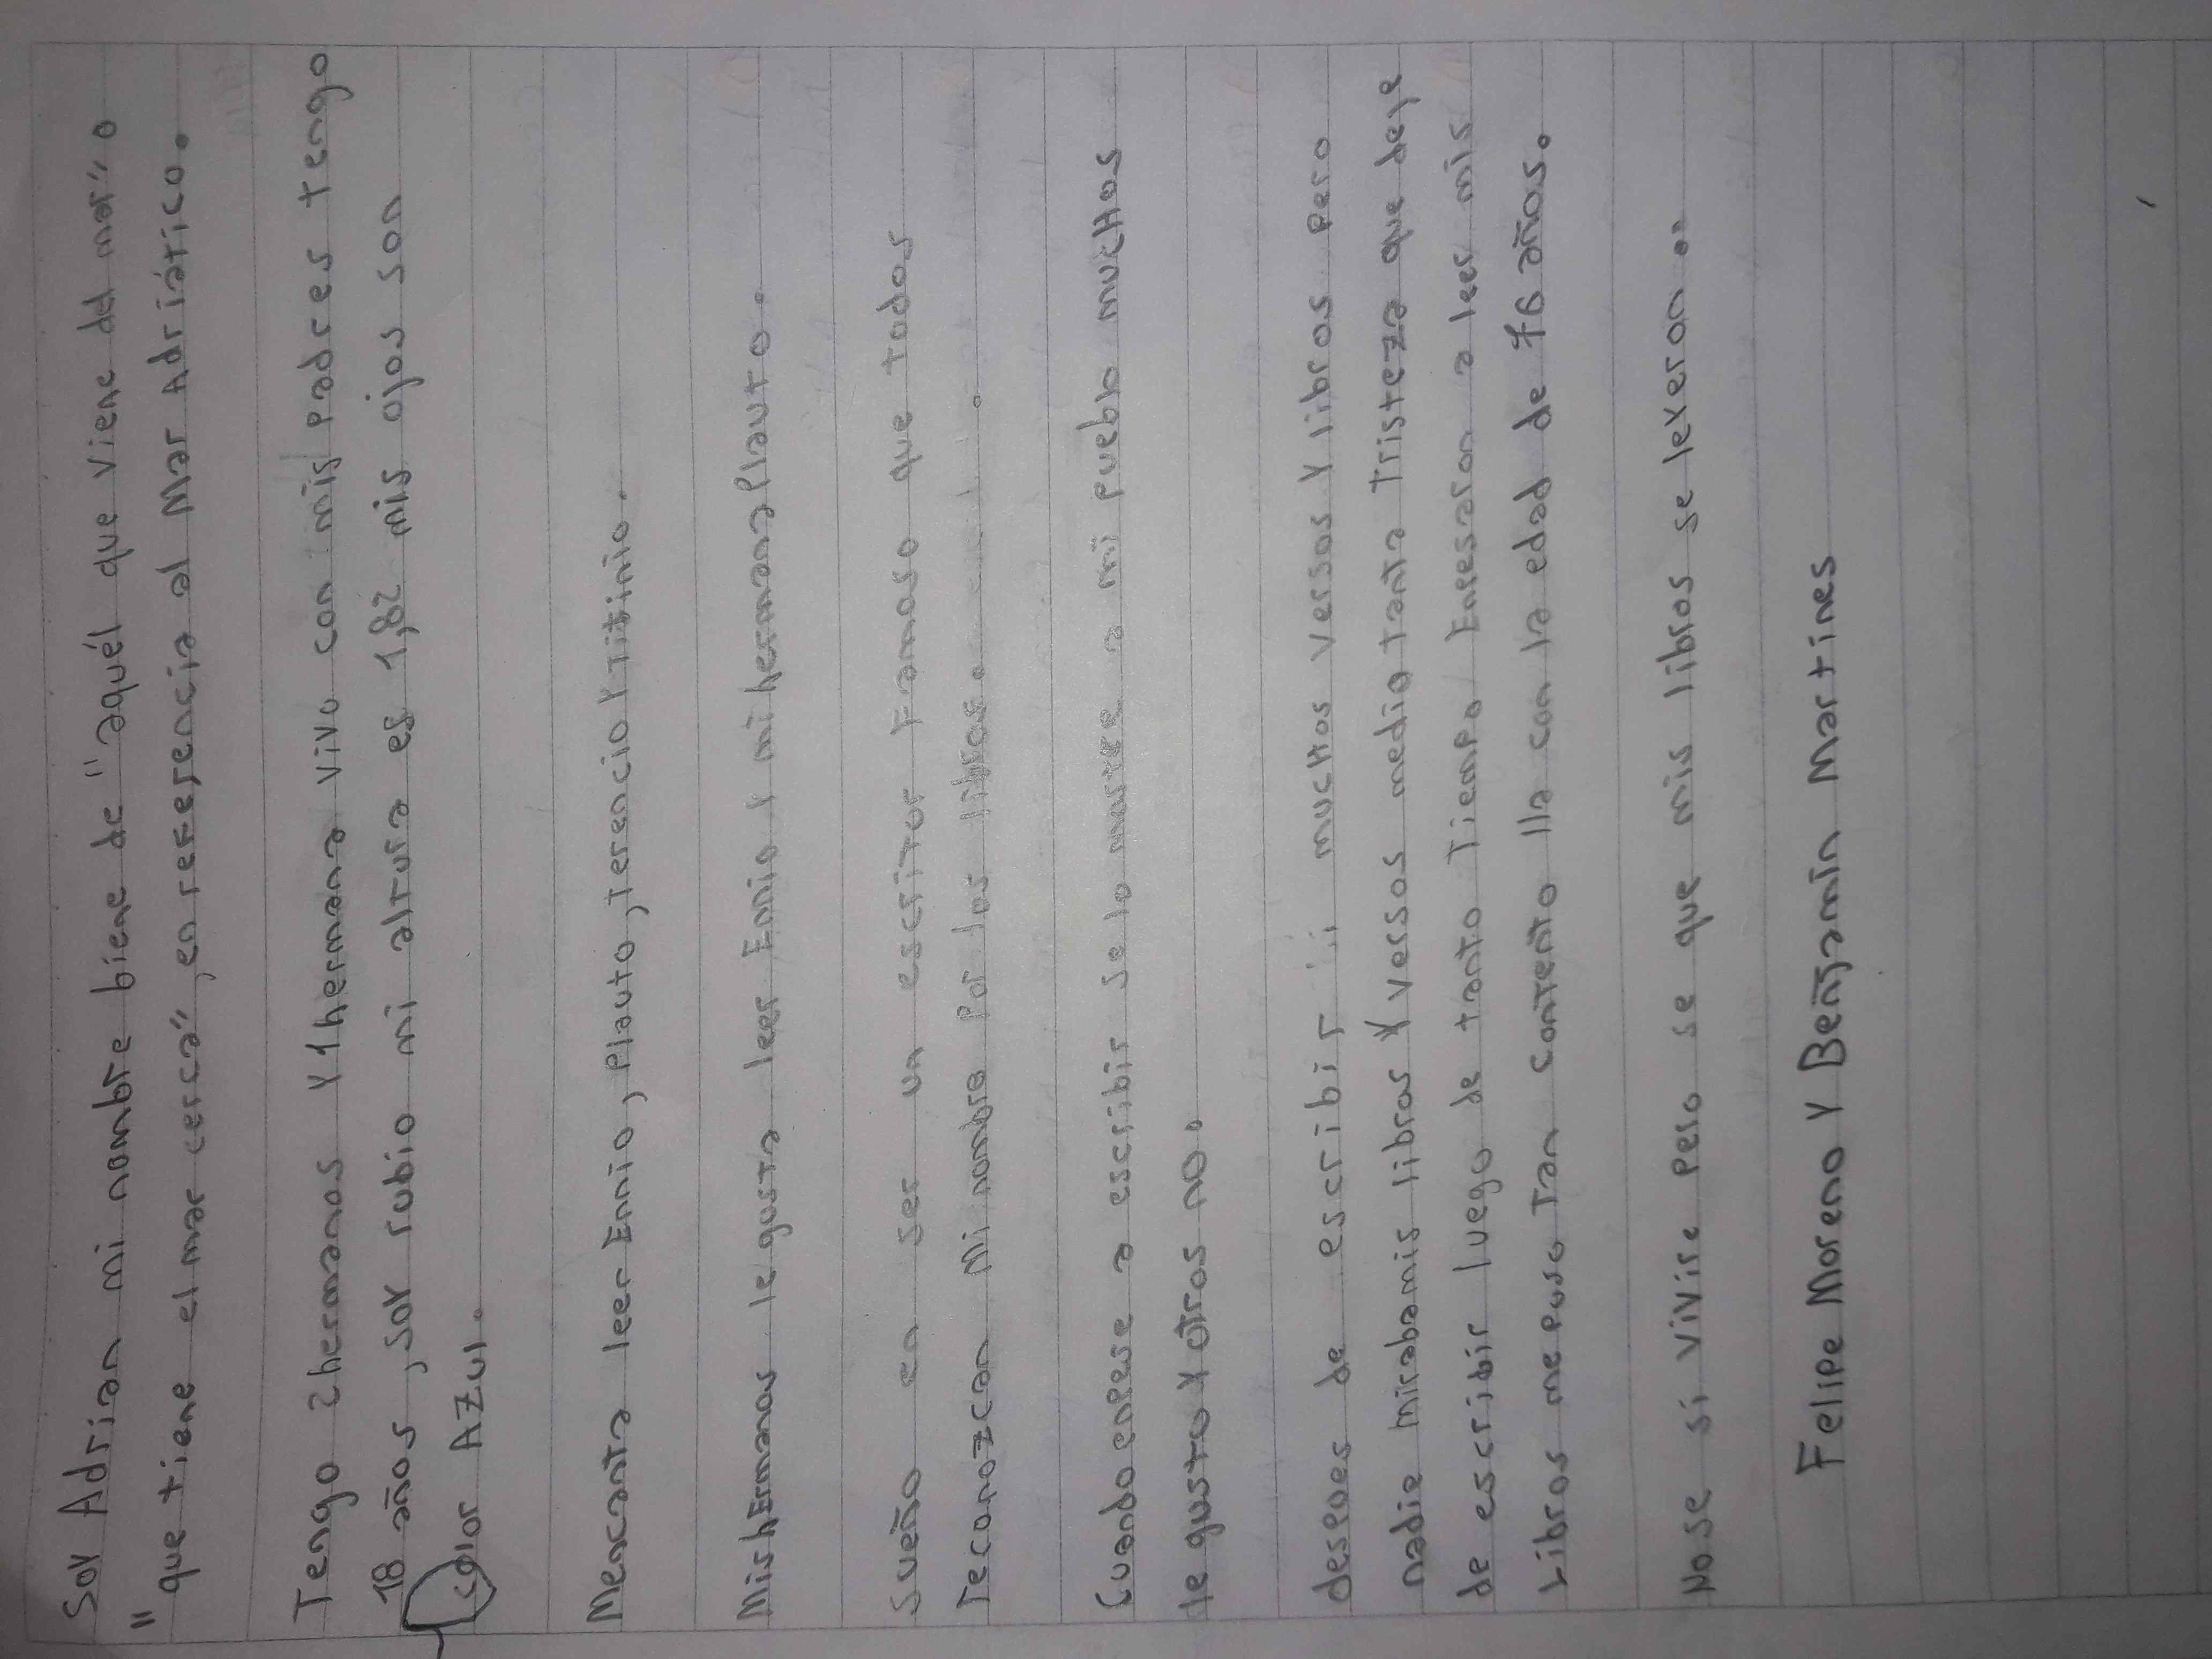 Soy Adrian mi nombre biene de "aquél que viene del mar" o
"que tiene el mar cerca", en referencia al Mar Adriático.
Tengo 2 hermanos y 1 hermana vivo con mis padres tengo
18 años, soy rubio mi altura es 1,82 mis ojos son
color Azul.
Meencanta leer Ennio, Plauto, Terencio y Titinio.
Mis hErmanos le gusta leer Ennio y mi hermana Plauto.
Sueño en ser un escritor Famoso que todos
reconozcan Mi nombre Por los libros.
Cuando enpese a escribir se lo mostre a mi pueblo mucHos
le gusto y otros no.
despues de escribir muchos versos y libros pero
nadie miraba mis libros y versos me dio tanta Tristeza que deje
de escribir luego de tanto Tiempo Enpesaron a leer mis
Libros me puso Tan contento lla con la edad de 76 años.
No se si vivire pero se que mis libros se leyeron..
Felipe Moreno y Benjamín Martines